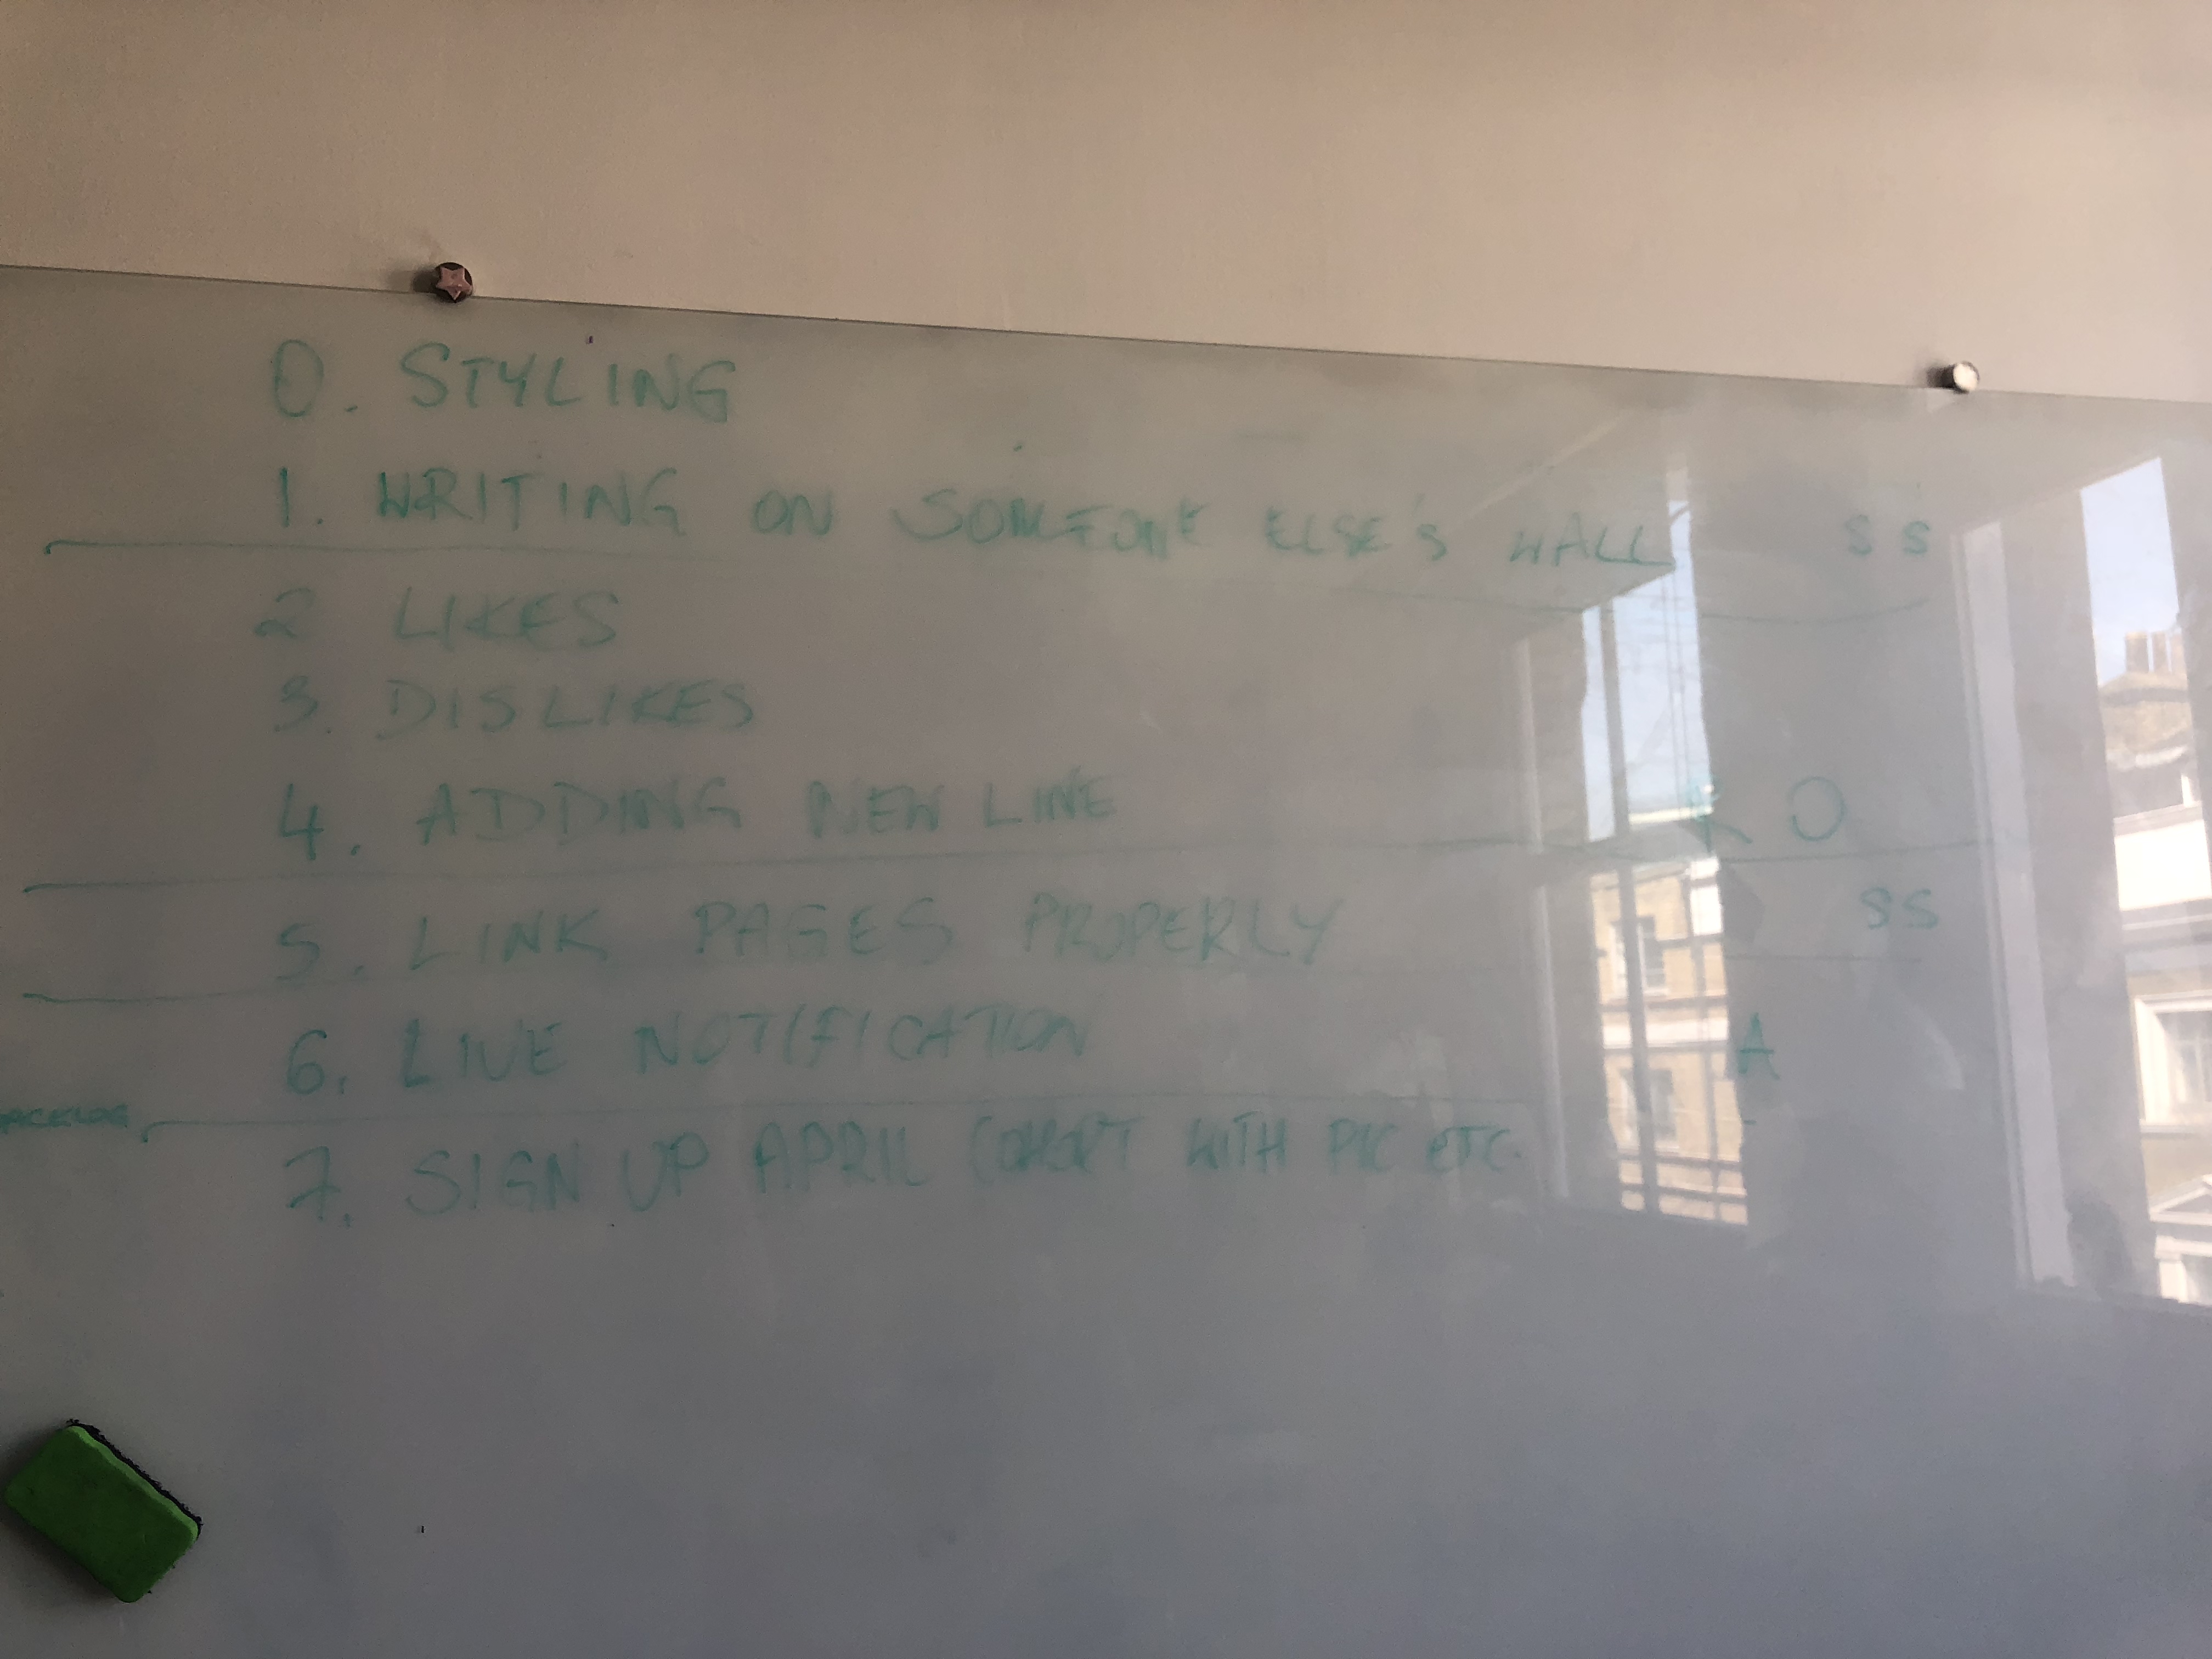 0. STYLING
1. WRITING ON SOMEONE ELSE'S WALL SS
2 LIKES
3. DISLIKES
4. ADDING NEW LINE K O
5. LINK PAGES PROPERLY SS
6. LIVE NOTIFICATION A
BACKLOG
7. SIGN UP APRIL COHORT WITH PIC ETC.